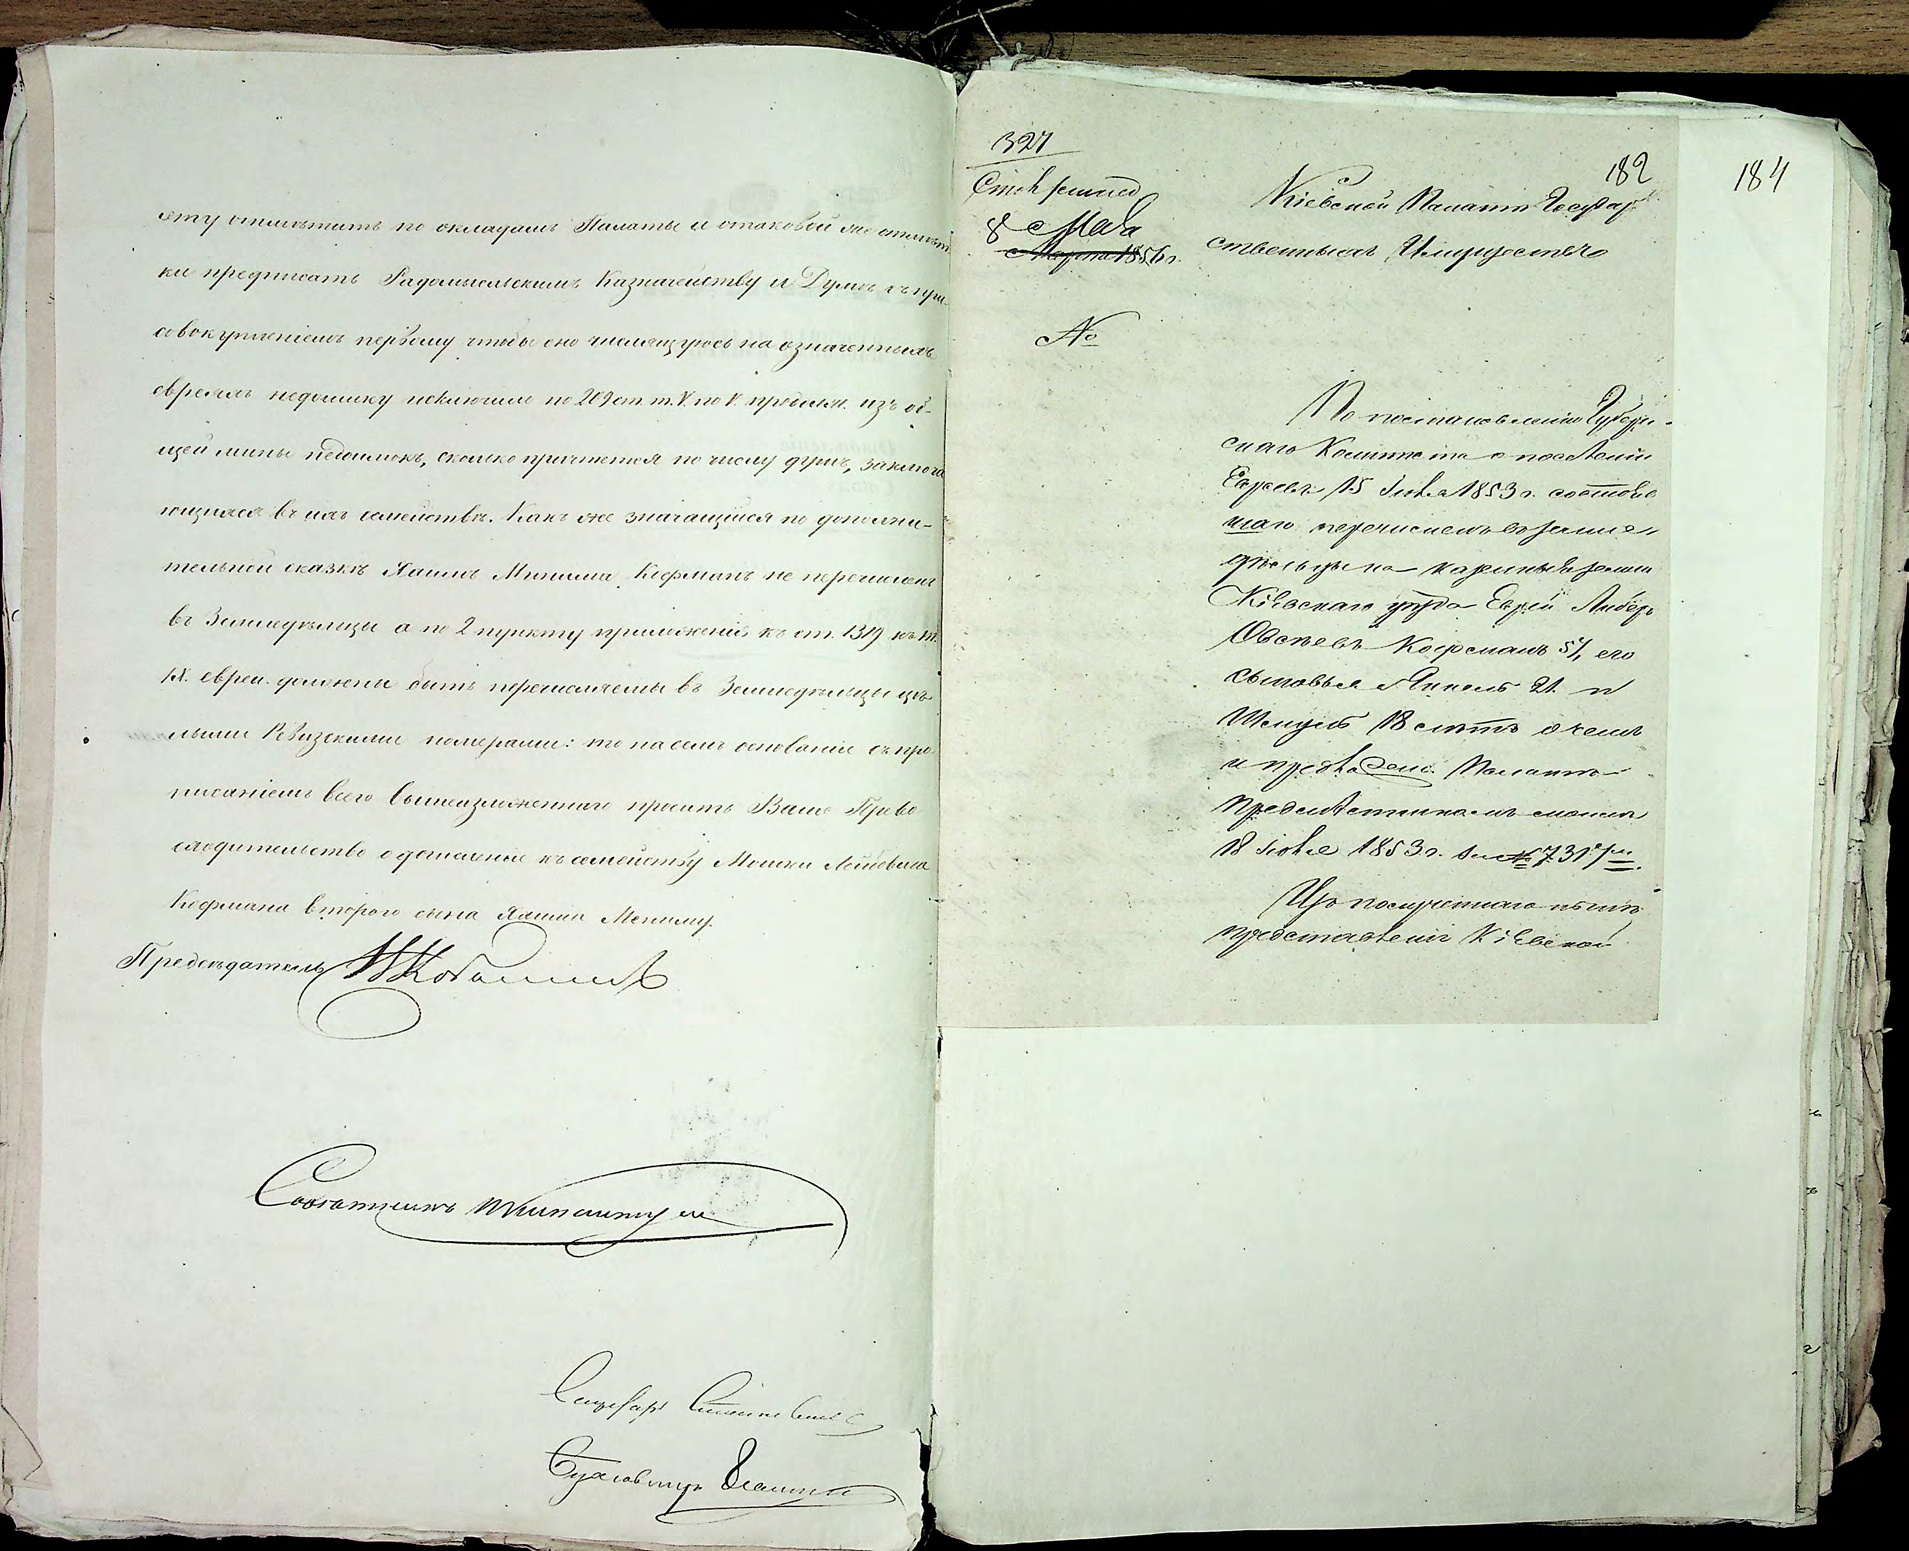 ету отмѣтить по окладамъ Палаты и отаковой же отмѣт
ки предписать Радомысльскимъ Казначейству и Думѣ съ при
совокупленіемъ первому чтобы оно числящуюсь на означенныхъ
евреяхъ недоимку исключило по 209 ст. т. V. по V. продолж. изъ об-
щей мины недоимокъ, сколько причтется по числу душъ, заключа
ющихся въ ихъ семействѣ. Какъ же значащійся по дополни-
тельной сказкѣ Хаимъ Кофманъ не перечисленъ
въ Земледѣльцы а по 2 пункту приложенія къ ст. 1319 т.
IX. евреи должны быть перечисляемы въ Земледѣльцы цѣ-
лыми Ревизскими номерами: то на семъ основаніи съ про
писаніемъ всего вышеизложеннаго проситъ Ваше Прево
сходительство о дочисленіи къ семейству Мошки Лейбовича
Кофмана втораго сына
Предсѣдатель
Совѣтникъ
Секретарь
Бухгалтеръ
182
184
327
8 Мая
Марта 1856 г.
Кіевской Палатѣ Государ
ственныхъ Имуществъ
№
По постановленію Губерн-
скаго Комитета о поселеніи
Евреевъ 15 Іюля 1853 г. состояв
шаго перечисленъ въ земле-
дѣльцы на казенныя земли
Кіевскаго уѣзда Еврей Либеръ
Овсѣевъ Кофманъ 51, его
сыновья Янкель 21 и
Шмуль 18 лѣтъ о чемъ
и Палатѣ
предмѣстникомъ моимъ
18 Іюля 1853 г. за № 7317
Изъ полученнаго нынѣ
представленія Кіевской